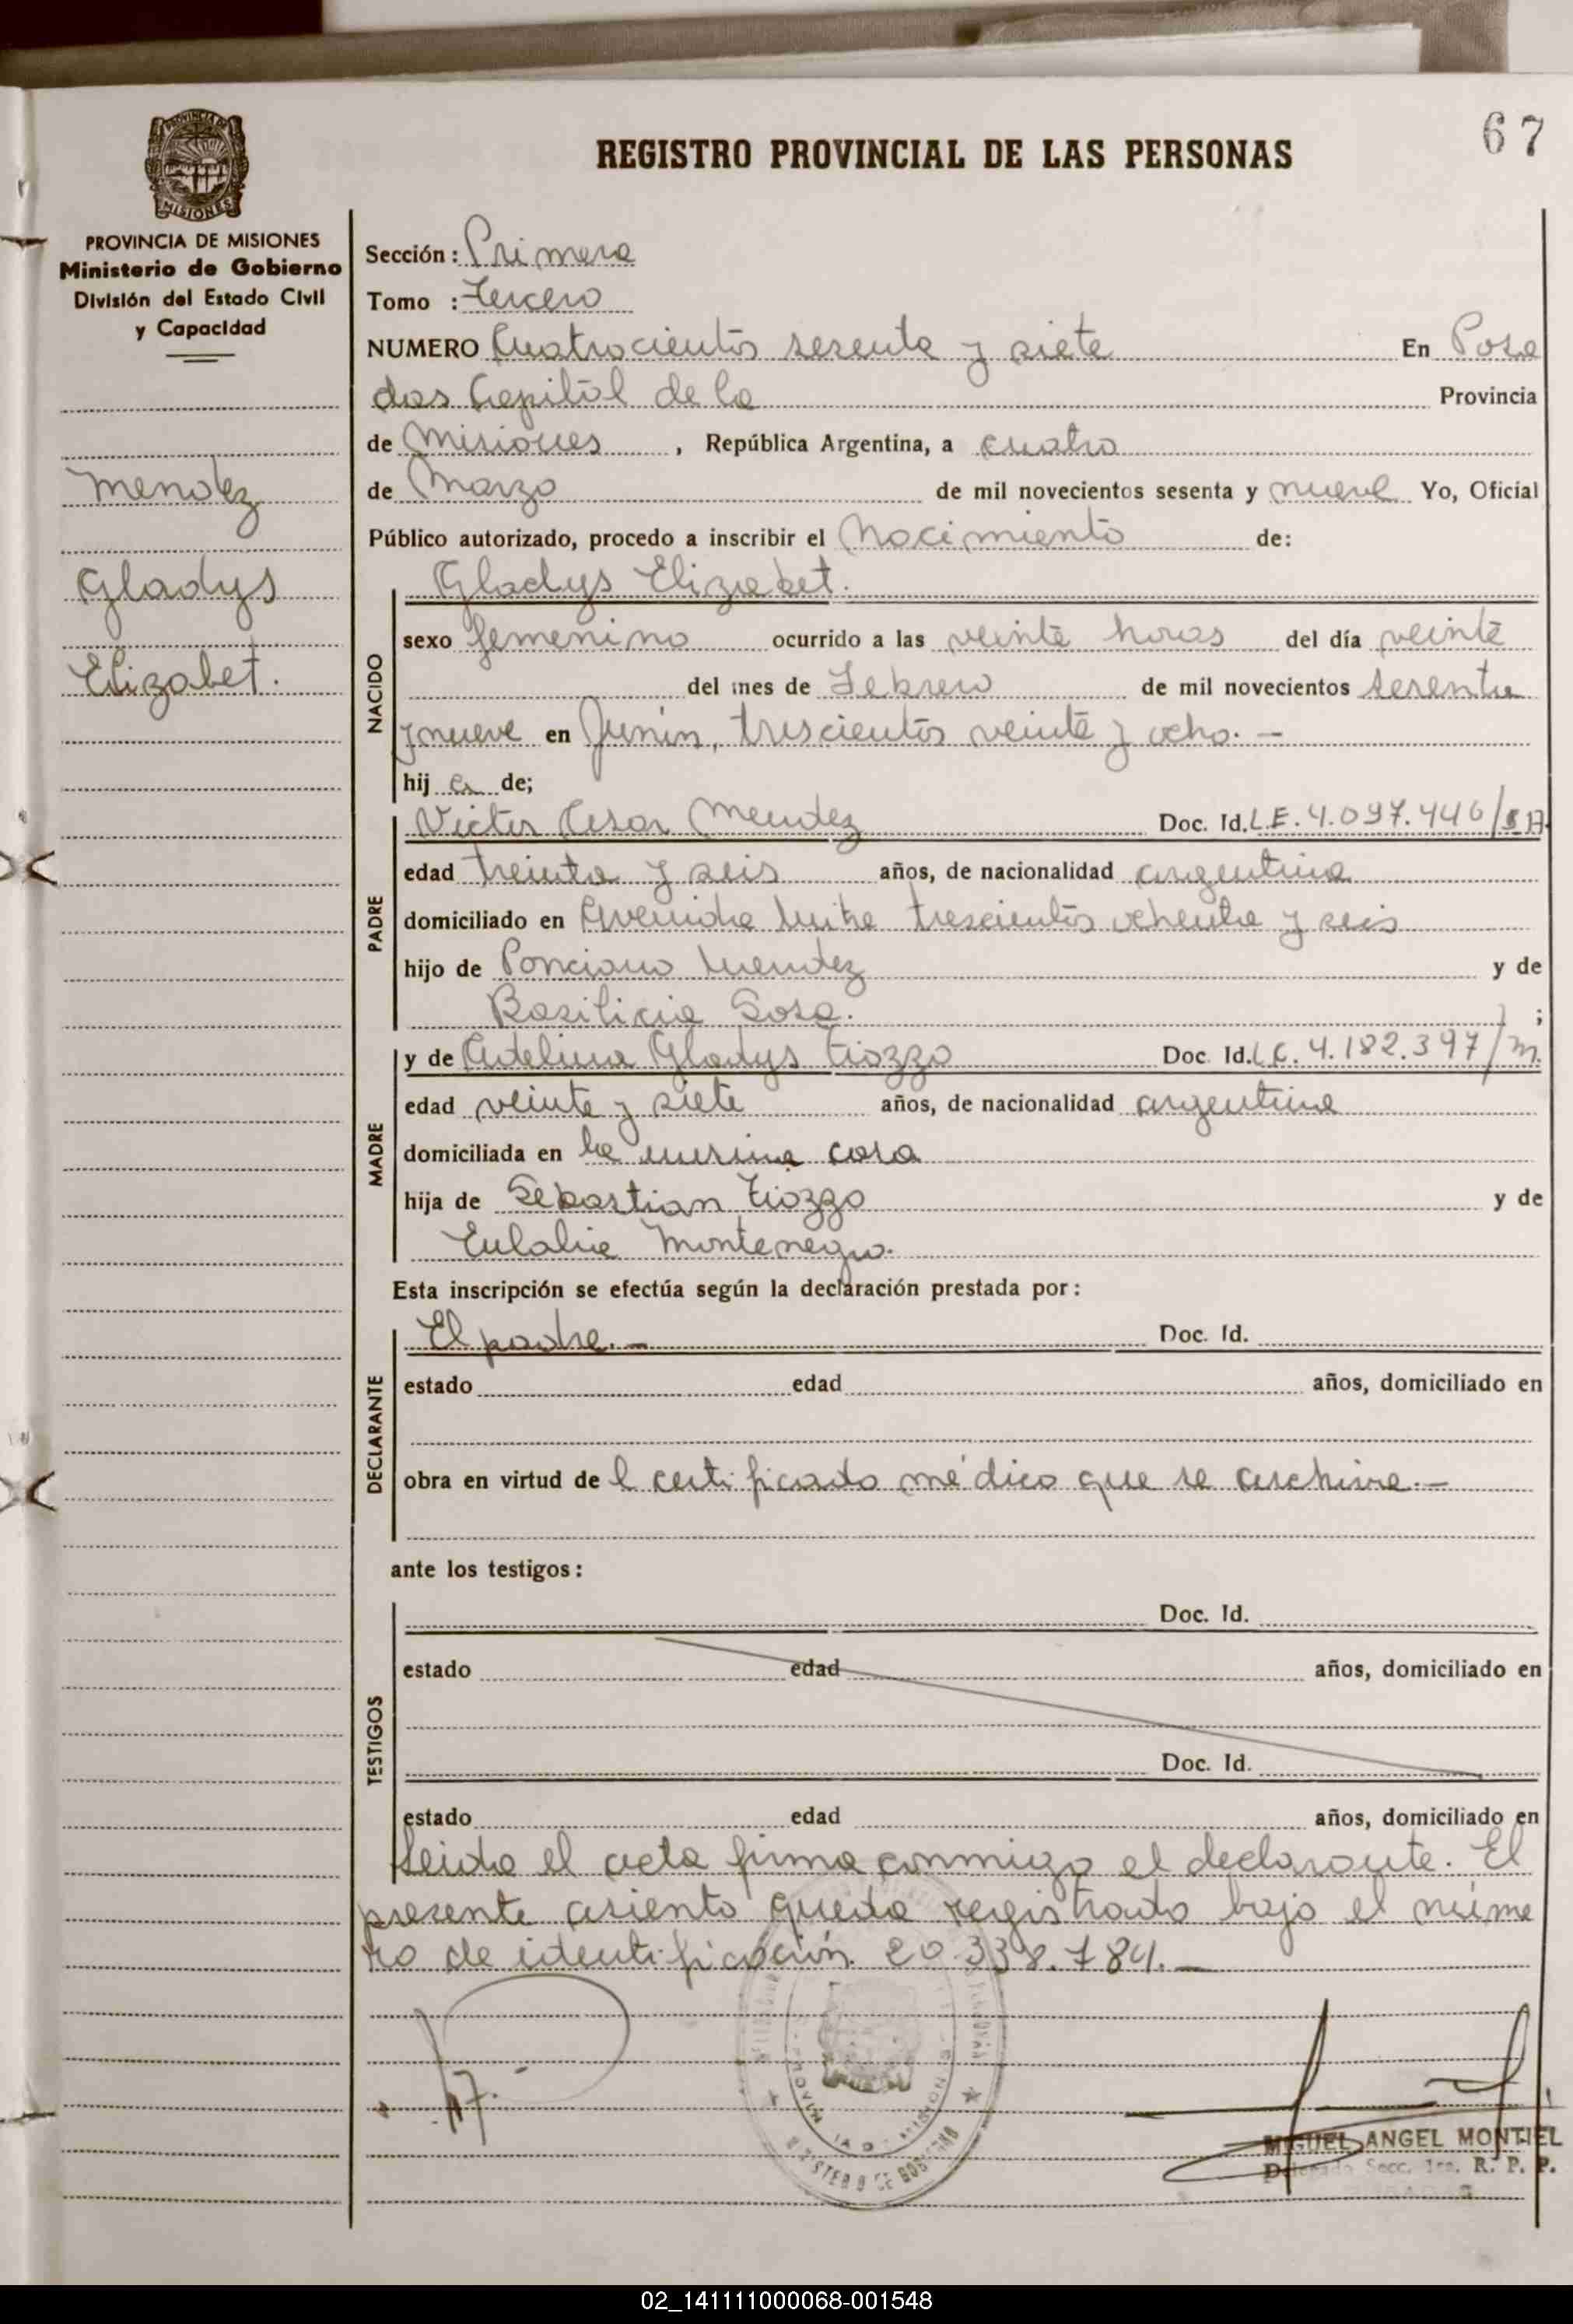 67
REGISTRO PROVINCIAL DE LAS PERSONAS
PROVINCIA DE MISIONES
Ministerio de Gobierno
División del Estado Civil
y Capacidad
Mendez
Gladys
Elizabet.
Sección: Primera
Tomo : tercero
NUMERO Cuatrocientos sesenta y siete En Posa
das Capital de la Provincia
de Misiones , República Argentina, a cuatro
de Marzo de mil novecientos sesenta y nueve Yo, Oficial
Público autorizado, procedo a inscribir el Nacimiento de:
Gladys Elizabet.
NACIDO
sexo femenino ocurrido a las veinte horas del día veinte
del mes de Febrero de mil novecientos sesenta
y nueve en Junín, trescientos veinte y ocho. —
hij a de;
PADRE
Victor Cesar Mendez Doc. Id. L.E. 4.097.446/
edad treinta y seis años, de nacionalidad argentina
domiciliado en Avenida Mitre trescientos ochenta y seis
hijo de Ponciano Mendez y de
Basilicia Sosa. ;
MADRE
y de Adelina Gladys Tiozzo Doc. Id. L.C. 4.182.397/M.
edad veinte y siete años, de nacionalidad argentina
domiciliada en la misma casa
hija de Sebastian Tiozzo y de
Eulalia Montenegro.
Esta inscripción se efectúa según la declaración prestada por:
DECLARANTE
El padre. — Doc. Id.
estado edad años, domiciliado en
obra en virtud de l certificado médico que se archiva. —
ante los testigos:
TESTIGOS
Doc. Id.
estado edad años, domiciliado en
Doc. Id.
estado edad años, domiciliado en
Leida el acta firma conmigo el declarante. El
presente asiento queda registrado bajo el núme
ro de identificación 20.338.784. —
MIGUEL ANGEL MONTIEL
Delegado Secc. 1ra. R. P. P.
02_141111000068-001548